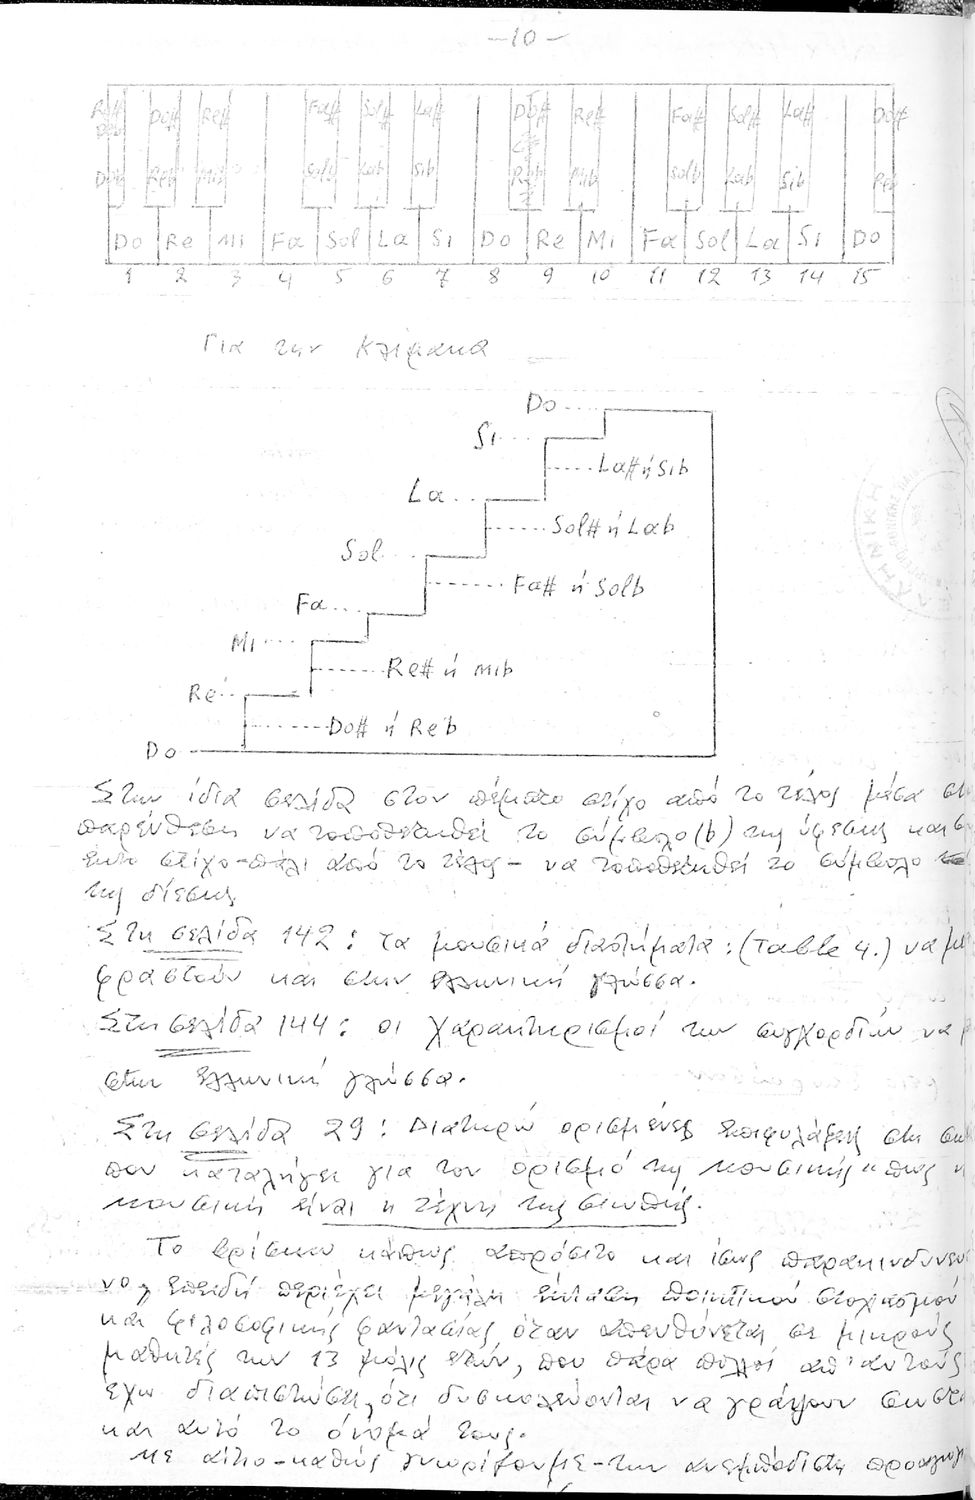 -10-
Do# Re# Fa# Sol# La# Do# Re# Fa# Sol# La# Do#
Reb Mib Solb Lab Sib Reb Mib Solb Lab Sib Reb
Do Re Mi Fa Sol La Si Do Re Mi Fa Sol La Si Do
1 2 3 4 5 6 7 8 9 10 11 12 13 14 15
Για την Κλίμακα
Do
Si
La# ή Sib
La
Sol# ή Lab
Sol
Fa# ή Solb
Fa
Mi
Re# ή mib
Re
Do# ή Reb
Do
Στην ίδια σελίδα στον πέμπτο στίχο από το τέλος μέσα
παρένθεση να τοποθετηθεί το σύμβολο (b) της ύφεσης και
έκτο στίχο-πάλι από το τέλος- να τοποθετηθεί το σύμβολο
της δίεσης
Στη σελίδα 142: τα μουσικά διαστήματα: (Table 4.) να με
φραστούν και στην ελληνική γλώσσα.
Στη σελίδα 144: οι χαρακτηρισμοί των συγχορδιών να
στην ελληνική γλώσσα.
Στη σελίδα 29: Διατηρώ ορισμένες επιφυλάξεις στη
που καταλήγει για τον ορισμό της μουσικής "πως η
μουσική είναι η τέχνη της σιωπής.
Το βρίσκω κάπως απρόσιτο και ίσως παρακινδυνευ
νο, επειδή περιέχει μεγάλη ένταση ποιητικού στοχασμού
και φιλοσοφικής φαντασίας, όταν απευθύνεται σε μικρούς
μαθητές των 13 μόλις ετών, που πάρα πολλοί απ' αυτούς
έχω διαπιστώσει, ότι δυσκολεύονται να γράψουν σωστά
και αυτό το όνομά τους.
Με αίτιο-καθώς γνωρίζουμε-την ανεμπόδιστη προαγωγ